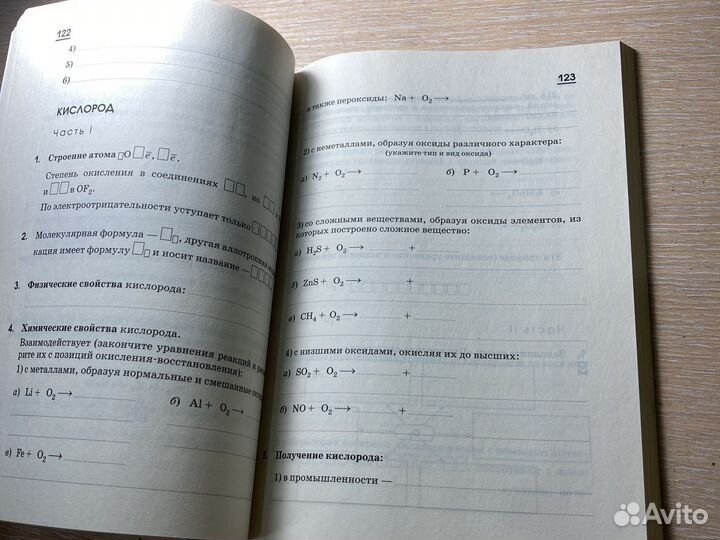 122
4)
5)
6)
КИСЛОРОД
Часть I
1. Строение атома □O □ē, □ē.
Степень окисления в соединениях □□, но □□
и □□ в OF₂.
По электроотрицательности уступает только □□□□
2. Молекулярная формула — □□, другая аллотропная
кация имеет формулу □□ и носит название — □□□□
3. Физические свойства кислорода:
4. Химические свойства кислорода.
Взаимодействует (закончите уравнения реакций и
рите их с позиций окисления-восстановления):
1) с металлами, образуя нормальные и смешанные
а) Li + O₂ ⟶
б) Al + O₂ ⟶
в) Fe + O₂ ⟶
123
а также пероксиды: Na + O₂ ⟶
2) с неметаллами, образуя оксиды различного характера:
(укажите тип и вид оксида)
а) N₂ + O₂ ⟶
б) P + O₂ ⟶
3) со сложными веществами, образуя оксиды элементов, из
которых построено сложное вещество:
а) H₂S + O₂ ⟶ +
б) ZnS + O₂ ⟶ +
в) CH₄ + O₂ ⟶ +
4) с низшими оксидами, окисляя их до высших:
а) SO₂ + O₂ ⟶ +
б) NO + O₂ ⟶ +
5. Получение кислорода:
1) в промышленности —
Avito